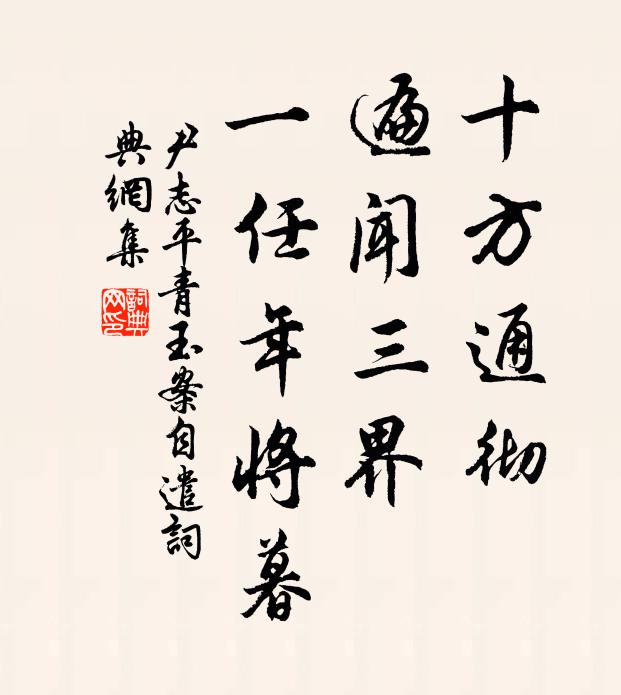 十方通彻
遍闻三界
一任年将暮
尹志平青玉案自遣詞
典網集
詞典
网印